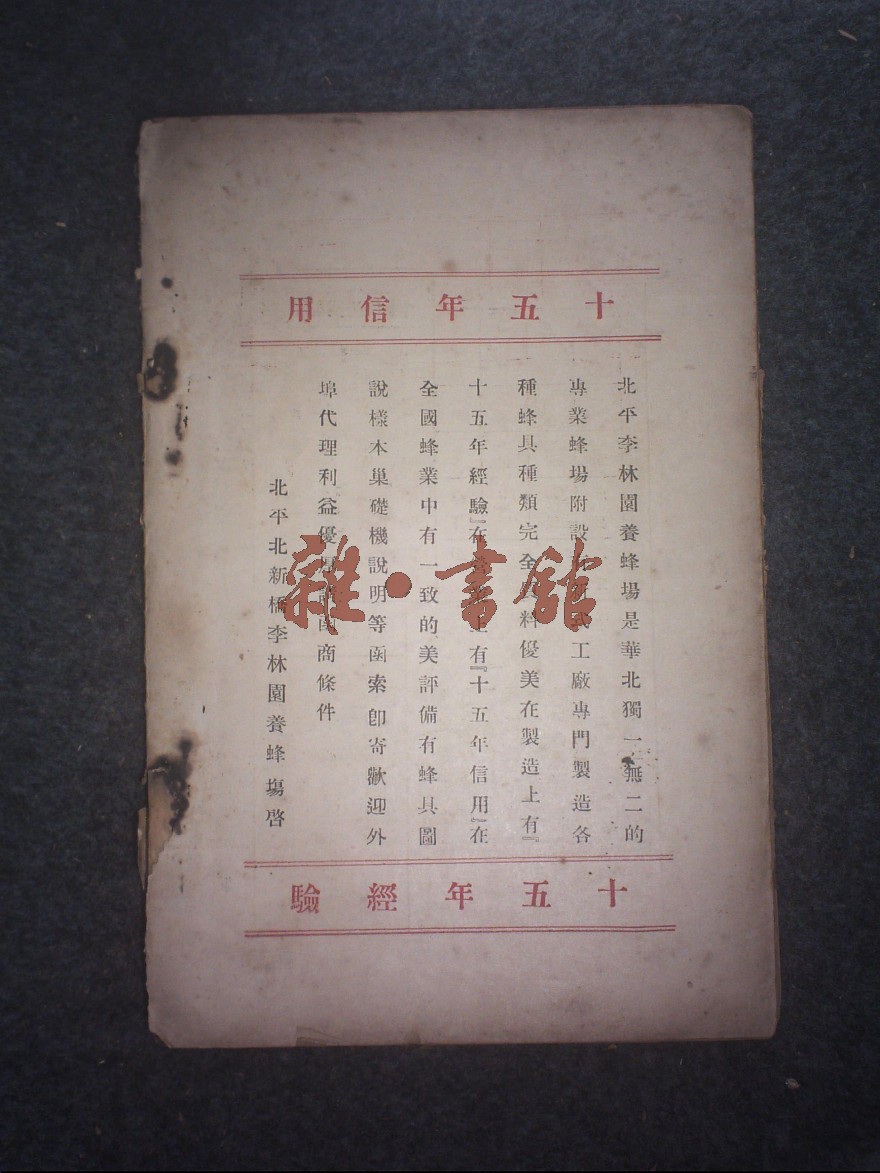 十五年信用
北平李林園養蜂場是華北獨一無二的
專業蜂場附設 式工廠專門製造各
種蜂具種類完全 料優美在製造上有『
十五年經驗』在 上有『十五年信用』在
全國蜂業中有一致的美評備有蜂具圖
說樣本巢礎機說明等函索卽寄歡迎外
埠代理利益優 函商條件
北平北新橋李林園養蜂塲啓
十五年經驗
雜·書館